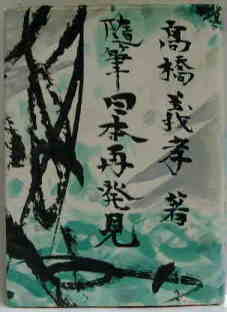 高橋義孝 著
随筆 日本再発見